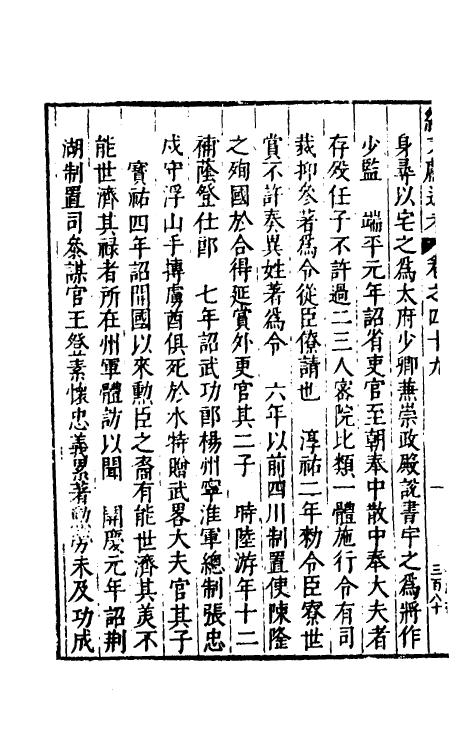 續文獻通考 卷之四十九 一 三百八十
身尋以宅之爲太府少卿兼崇政殿說書宇之爲將作
少監 端平元年詔省吏官至朝奉中散中奉大夫者
存歿任子不許過二三人密院比類一體施行令有司
裁抑叅著爲令從臣僚請也 淳祐二年勑令臣寮世
賞不許奏異姓著爲令 六年以前四川制置使陳隆
之殉國於合得延賞外更官其二子 時陸游年十二
補蔭登仕郎 七年詔武功郎楊州寧淮軍總制張忠
戍守浮山手搏虜酋俱死於水特贈武畧大夫官其子
寳祐四年詔開國以來勲臣之裔有能世濟其美不
能世濟其祿者所在州軍體訪以聞 開慶元年詔荆
湖制置司叅謀官王登素懷忠義累著勲勞未及功成